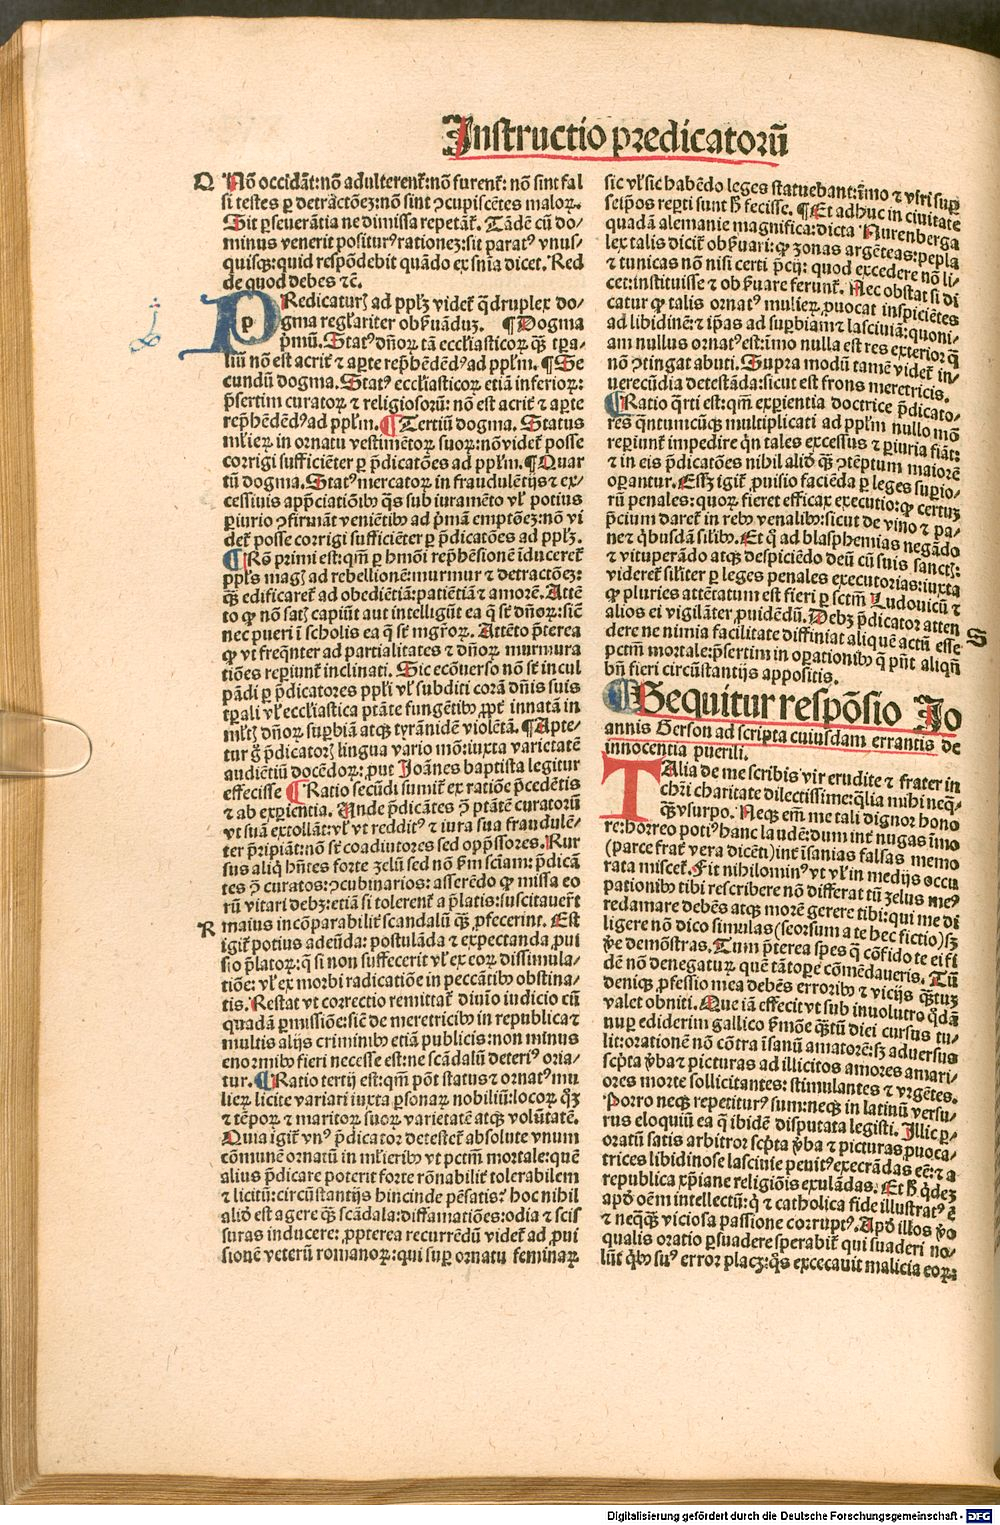 Instructio predicatorū
Q
Nō occidāt: nō adulterenť: nō furenť: nō sint fal
si testes ꝑ detractōeꝫ: nō sint ꝯcupiscētes maloꝝ.
Sit ꝑseuerātia ne dimissa repetāť. Tādē cū do-
minus venerit positurꝰ rationeꝫ: sit paratꝰ vnus-
quisqꝫ: quid respōdebit quādo ex snĩa dicet. Red
de quod debes ⁊c̄.
PRedicaturꝭ ad ppłꝫ videť q̄druplex do-
gma regłariter obẜuāduꝫ. ¶Dogma
p̄mū. Statꝰ dñoꝝ tā ecc̄łiasticoꝝ qꝫ̄ tꝑa-
liū nō est acriť ⁊ aꝑte rep̄hēdēdꝰ ad ppłm. ¶Se
cundū dogma. Statꝰ ecc̄łiasticoꝝ etiā inferioꝝ:
p̄sertim curatoꝝ ⁊ religiosorū: nō est acriť ⁊ aꝑte
rep̄hēdēdꝰ ad ppłm. ¶Tertiū dogma. Status
mľieꝝ in ornatu vestimētoꝝ suoꝝ: nō videť posse
corrigi sufficiēter ꝑ p̄dicatōes ad ppłm. ¶Quar
tū dogma. Statꝰ mercatoꝝ in fraudulētijs ⁊ ex-
cessiuis app̄ciatiōibꝰ q̄s sub iuramēto vľ potius
ꝑiurio ꝯfirmāt veniētibꝰ ad p̄mā emptōeꝫ: nō vi
deť posse corrigi sufficiēter ꝑ p̄dicatōes ad ppłꝫ.
¶Rō primi est: qm̄ ꝑ hmōi rep̄hēsionē īducereť
ppłs magꝭ ad rebellionē: murmur ⁊ detractōeꝫ:
qꝫ̄ edificareť ad obediētiā: patiētiā ⁊ amorē. Attē
to ꝙ nō satꝭ capiūt aut intelligūt ea q̄ sť dñoꝝ: sic̄
nec pueri ī scholis ea q̄ sť mgr̄oꝝ. Attēto p̄terea
ꝙ vt freq̄nter ad partialitates ⁊ dñoꝝ murmura
tiōes reꝑiunť inclinati. Sic ecōuerso nō sť incul
pādi ꝑ p̄dicatores ppłi vľ subditi corā dñis suis
tꝑali vľ ecc̄łiastica ptāte fungētibꝰ, ꝓpť innatā in
mľtꝭ dñoꝝ suꝑbiā atqꝫ tyrānidē violētā. ¶Apte-
tur g̊ p̄dicatorꝭ lingua vario mō: iuxta varietatē
audiētiū docēdoꝝ: put Joānes baptista legitur
effecisse ¶Ratio secūdi sumiť ex ratiōe p̄cedētis
⁊ ab exꝑientia. Unde p̄dicātes ꝯ ptātē curatorū
vt suā extollāt: vľ vt redditꝰ ⁊ iura sua fraudulē-
ter p̄ripiāt: nō sť coadiutores sed opp̄ssores. Rur
sus aliq̄ hñtes forte zelū sed nō ẜm sciam: p̄dicā
tes ꝯ curatos: ꝯcubinarios: asserēdo ꝙ missa eo
rū vitari debꝫ: etiā si tolerenť a p̄latis: suscitauerť
R
maius incōparabiliť scandalū qꝫ̄ ꝓfecerint. Est
igiť potius adeūda: postulāda ⁊ expectanda ꝓui
sio p̄latoꝝ: q̄ si non suffecerit vľ ex eoꝝ dissimula-
tiōe: vľ ex morbi radicatiōe in peccātibꝰ obstina-
tis. Restat vt correctio remittať diuīo iudicio cū
quadā ꝑmissiōe: sic̄ de meretricibꝰ in republica ⁊
multis alijs criminibꝰ etiā publicis: non minus
enormibꝰ fieri necesse est: ne scādalū deteriꝰ oria-
tur. ¶Ratio tertij est: qm̄ pōt status ⁊ ornatꝰ mu
lieꝝ licite variari iuxta ꝑsonaꝝ nobiliū: locoꝝ qꝫ
⁊ tēpoꝝ ⁊ maritoꝝ suoꝝ varietatē atqꝫ volūtatē.
Quia igiť vnꝰ p̄dicator detesteť absolute vnum
cōmunē ornatū in mľieribꝰ vt pctm̄ mortale: quē
alius p̄dicare poterit forte rōnabiliť tolerabilem
⁊ licitū: circūstantijs hincinde pēsatis: hoc nihil
aliđ est agere qꝫ̄ scādala: diffamatiōes: odia ⁊ scis
suras inducere: ꝓpterea recurrēdū videť ad ꝓui
sionē veterū romanoꝝ: qui suꝑ ornatu feminaꝝ
sic vľ sic habēdo leges statuebant: īmo ⁊ vīri suꝑ
seip̄os reꝑti sunt ẜ fecisse. ¶Et adhuc in ciuitate
quadā alemanie magnifica: dicta Nurenberga
lex talis diciť obẜuari: ꝙ zonas argēteas: pepla
⁊ tunicas nō nisi certi p̄cij: quod excedere nō li-
cet: instituisse ⁊ obẜuare ferunť. Nec obstat si di
catur ꝙ talis ornatꝰ mulieꝝ, ꝓuocat inspiciētes
ad libidinē: ⁊ ip̄as ad suꝑbiam ⁊ lasciuiā: quoni-
am nullus ornatꝰ est: īmo nulla est res exterior q̄
nō ꝯtingat abuti. Supra modū tamē videť in-
uerecūdia detestāda: sicut est frons meretricis.
¶Ratio q̄rti est: qm̄ exꝑientia doctrice p̄dicato-
res q̄ntumcūqꝫ multiplicati ad ppłm nullo mō
reꝑiunť impedire q̄n tales excessus ⁊ ꝑiuria fiāt:
⁊ in eis p̄dicatōes nihil aliđ qꝫ̄ ꝯtēptum maiorē
oꝑantur. Esꝫ igiť ꝓuisio faciēda ꝑ leges suꝑio-
rū penales: quoꝝ fieret efficax executio: ꝙ certuꝫ
p̄cium dareť in rebꝰ venalibꝰ: sicut de vino ⁊ pa-
ne ⁊ q̄busdā siľibꝰ. Et q̄ ad blasphemias negādo
⁊ vituperādo atqꝫ despiciēdo deū cū suis sanctꝭ:
videreť siľiter ꝑ leges penales executorias: iuxta
ꝙ pluries attētatum est fieri ꝑ sctm̄ Ludouicū ⁊
alios ei vigilāter ꝓuidēdū. Debꝫ p̄dicator atten
S
dere ne nimia facilitate diffiniat aliquē actū esse
pctm̄ mortale: p̄sertim in oꝑationibꝰ q̄ pñt aliqñ
bñ fieri circūstantijs appositis.
¶Sequitur respōsio Jo
annis Gerson ad scripta cuiusdam errantis de
innocentia puerili.
TAlia de me scribis vir erudite ⁊ frater in
chrī charitate dilectissime: q̄lia mihi neq-
qꝫ̄ vsurpo. Neqꝫ em̄ me tali dignor hono
re: horreo potiꝰ hanc laudē: dum inť nugas īmo
(parce frať vera dicēti) inť īsanias falsas memo
rata misceť. Fit nihilominꝰ vt vľ in medijs occu
pationibꝰ tibi rescribere nō differat tū zelus meꝰ
redamare debēs atqꝫ morē gerere tibi: qui me di
ligere nō dico simulas (seorsum a te hec fictio) sꝫ
ꝟe demōstras. Tum p̄terea spes q̄ cōfido te ei fi
dē nō denegatuꝝ quē tātoꝑe cōmēdaueris. Tū
deniqꝫ ꝓfessio mea debēs erroribꝰ ⁊ vicijs qꝫ̄tuꝫ
valet obniti. Que iā effecit vt sub inuolutro q̄dā
nuꝑ ediderim gallico ẜmōe qꝫ̄tū diei cursus tu-
lit: orationē nō cōtra īsanū amatorē: sꝫ aduersus
scp̄ta ꝟba ⁊ picturas ad illicitos amores amari-
ores morte sollicitantes: stimulantes ⁊ vrgētes.
Porro neqꝫ repetiturꝰ sum: neqꝫ in latinū versu-
rus eloquiū ea q̄ ibidē disputata legisti. Illic ꝑ-
oratū satis arbitror scp̄ta ꝟba ⁊ picturas ꝓuoca-
trices libidinose lasciuie penitꝰ execrādas eē: ⁊ a
republica xp̄iane religiōis exulādas. Et ẜ q̄deꝫ
apđ oēm intellectū: q̄ ⁊ catholica fide illustratꝰ ē
⁊ neqꝫ̄ viciosa passione corruptꝰ. Apđ illos ꝟo
qualis oratio ꝑsuadere sperabiť qui suaderi no-
lūt q̄bꝰ suꝰ error placꝫ: q̄s excecauit malicia eoꝝ:
Digitalisierung gefördert durch die Deutsche Forschungsgemeinschaft - DFG